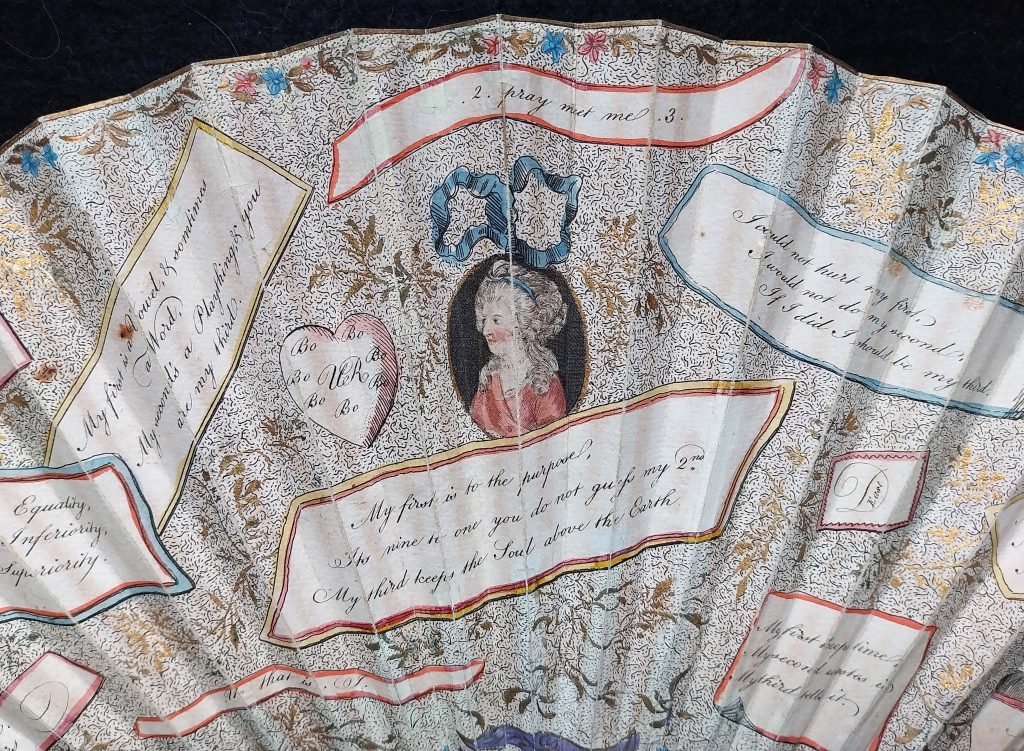 .2. pray met me .3.
My first is a Vowel, & sometimes
a Word,
My second's a Plaything, & you
are my third.
I would not hurt my first,
I would not do my second,
If I did I should be my third.
Bo Bo
Bo Bo
UR
Bo Bo
Bo Bo
My first is to the purpose,
Its nine to one you do not guess my 2nd
My third keeps the Soul above the Earth.
Equality,
Inferiority,
Superiority.
My first keeps time,
My second
My third tells it.
that is
D